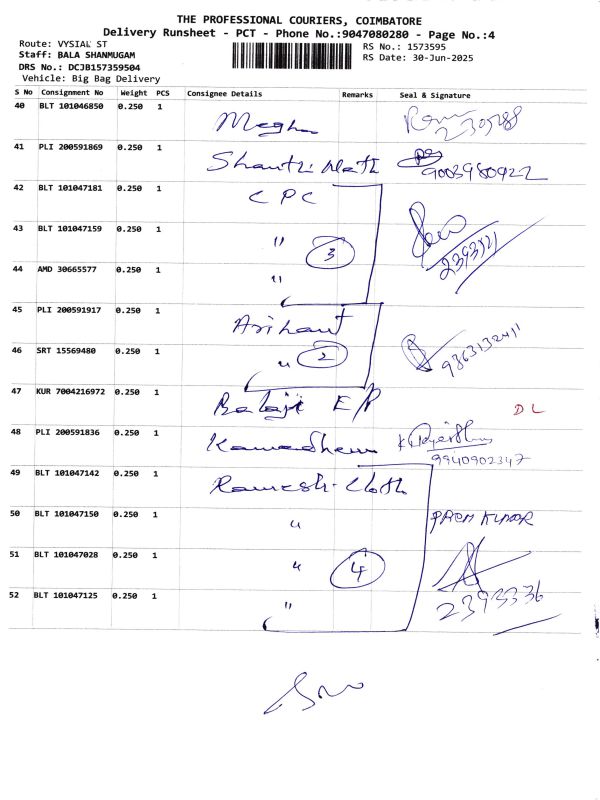 THE PROFESSIONAL COURIERS, COIMBATORE
Delivery Runsheet - PCT - Phone No.:9047080280 - Page No.:4
Route: VYSIAL ST
RS No.: 1573595
Staff: BALA SHANMUGAM
RS Date: 30-Jun-2025
DRS No.: DCJB157359504
Vehicle: Big Bag Delivery
S No Consignment No Weight PCS Consignee Details Remarks Seal & Signature
40 BLT 101046850 0.250 1 Megha
41 PLI 200591869 0.250 1 Shanti Math 9003980922
42 BLT 101047181 0.250 1 CPC
43 BLT 101047159 0.250 1 " 3
44 AMD 30665577 0.250 1 "
45 PLI 200591917 0.250 1 Arihant
46 SRT 15569480 0.250 1 " 2 9363132411
47 KUR 7004216972 0.250 1 Balaji EP DL
48 PLI 200591836 0.250 1 Kamadhenu 9940902347
49 BLT 101047142 0.250 1 Ramesh Cloth
50 BLT 101047150 0.250 1 "
51 BLT 101047028 0.250 1 " 4
52 BLT 101047125 0.250 1 " 2393336